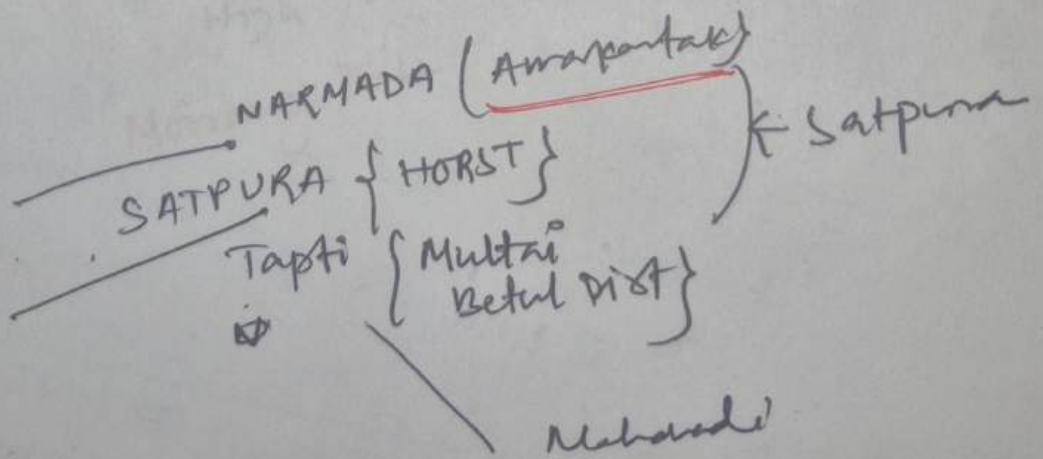 NARMADA (Amarkantak)
SATPURA {HORST} Satpura
Tapti {Multai
Betul Dist}
Mahanadi